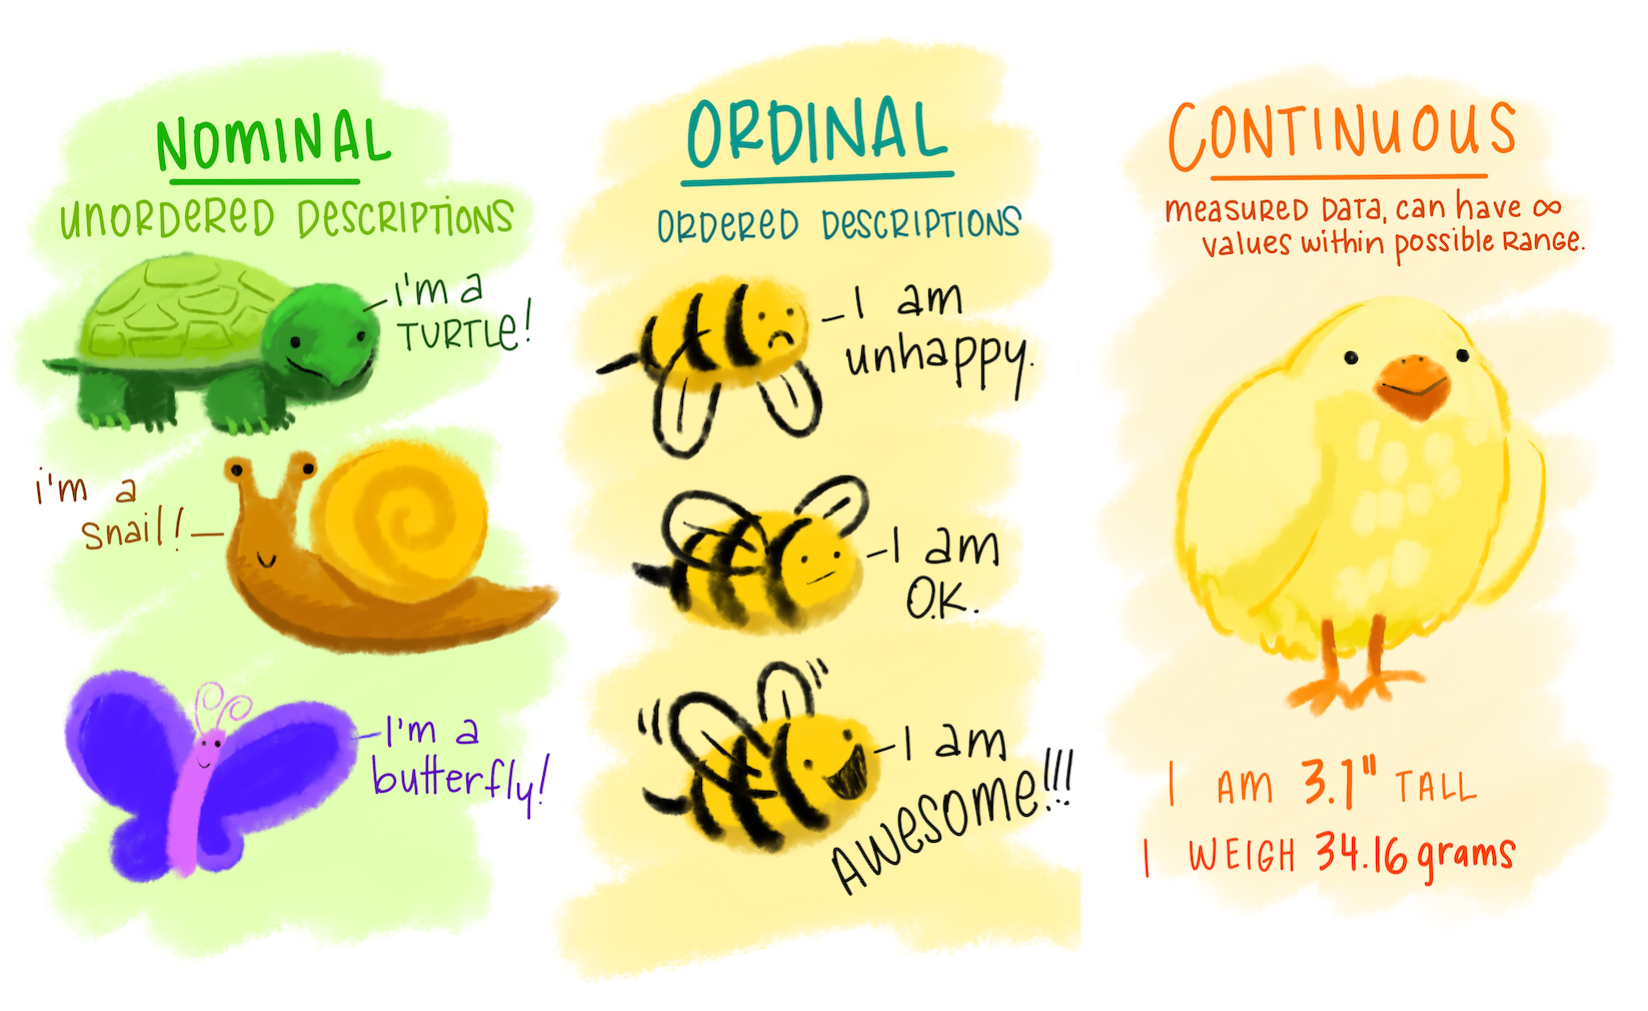 NOMINAL
UNORDERED DESCRIPTIONS
i'm a
TURTLe!
i'm a
snail!
I'm a
butterfly!
ORDINAL
ORDERED DESCRIPTIONS
I am
unhappy.
I am
O.K.
I am
AWESOME!!!
CONTINUOUS
measured Data, can have ∞
values within possible Range.
I AM 3.1" TALL
I WEIGH 34.16 grams